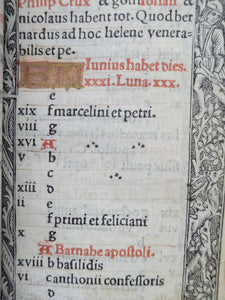 Philip Crux & gothofian &
nicolaus habent tot. Quod ber
nardus ad hoc helene venera
bilis et pe.
Iunius habet dies.
xxxi. Luna. xxx.
e
xix f marcelini et petri.
viii g
xvi A
v b
c
xiii d
ii e
f primi et feliciani
x g
A Barnabe apostoli.
xviii b basilidis
vi c anthonii confessoris
d